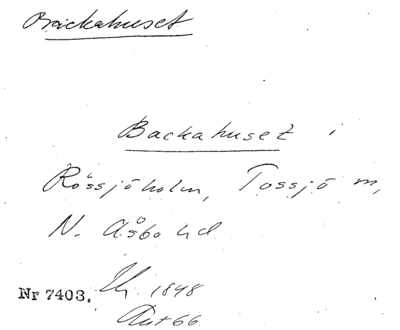 Brickahuset
Backahuset i
Rössjöholm, Tossjö m,
N. Åsbo hd
Nr 7403. Uh. 1848
Rut 66